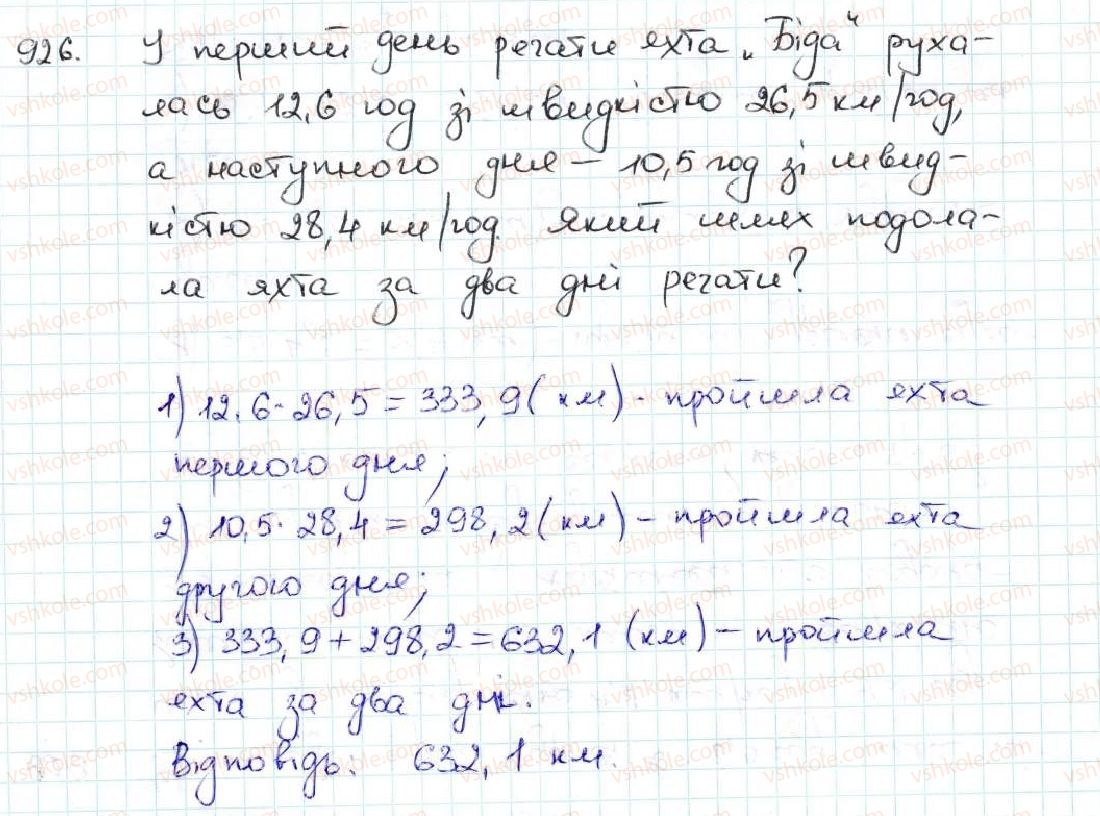 926. У перший день регати яхта „Біда“ руха-
лась 12,6 год зі швидкістю 26,5 км/год,
а наступного дня – 10,5 год зі швид-
кістю 28,4 км/год. Який шлях подола-
ла яхта за два дні регати?
1) 12,6 · 26,5 = 333,9 (км) - пройшла яхта
першого дня;
2) 10,5 · 28,4 = 298,2 (км) – пройшла яхта
другого дня;
3) 333,9 + 298,2 = 632,1 (км) – пройшла
яхта за два дні.
Відповідь: 632,1 км.